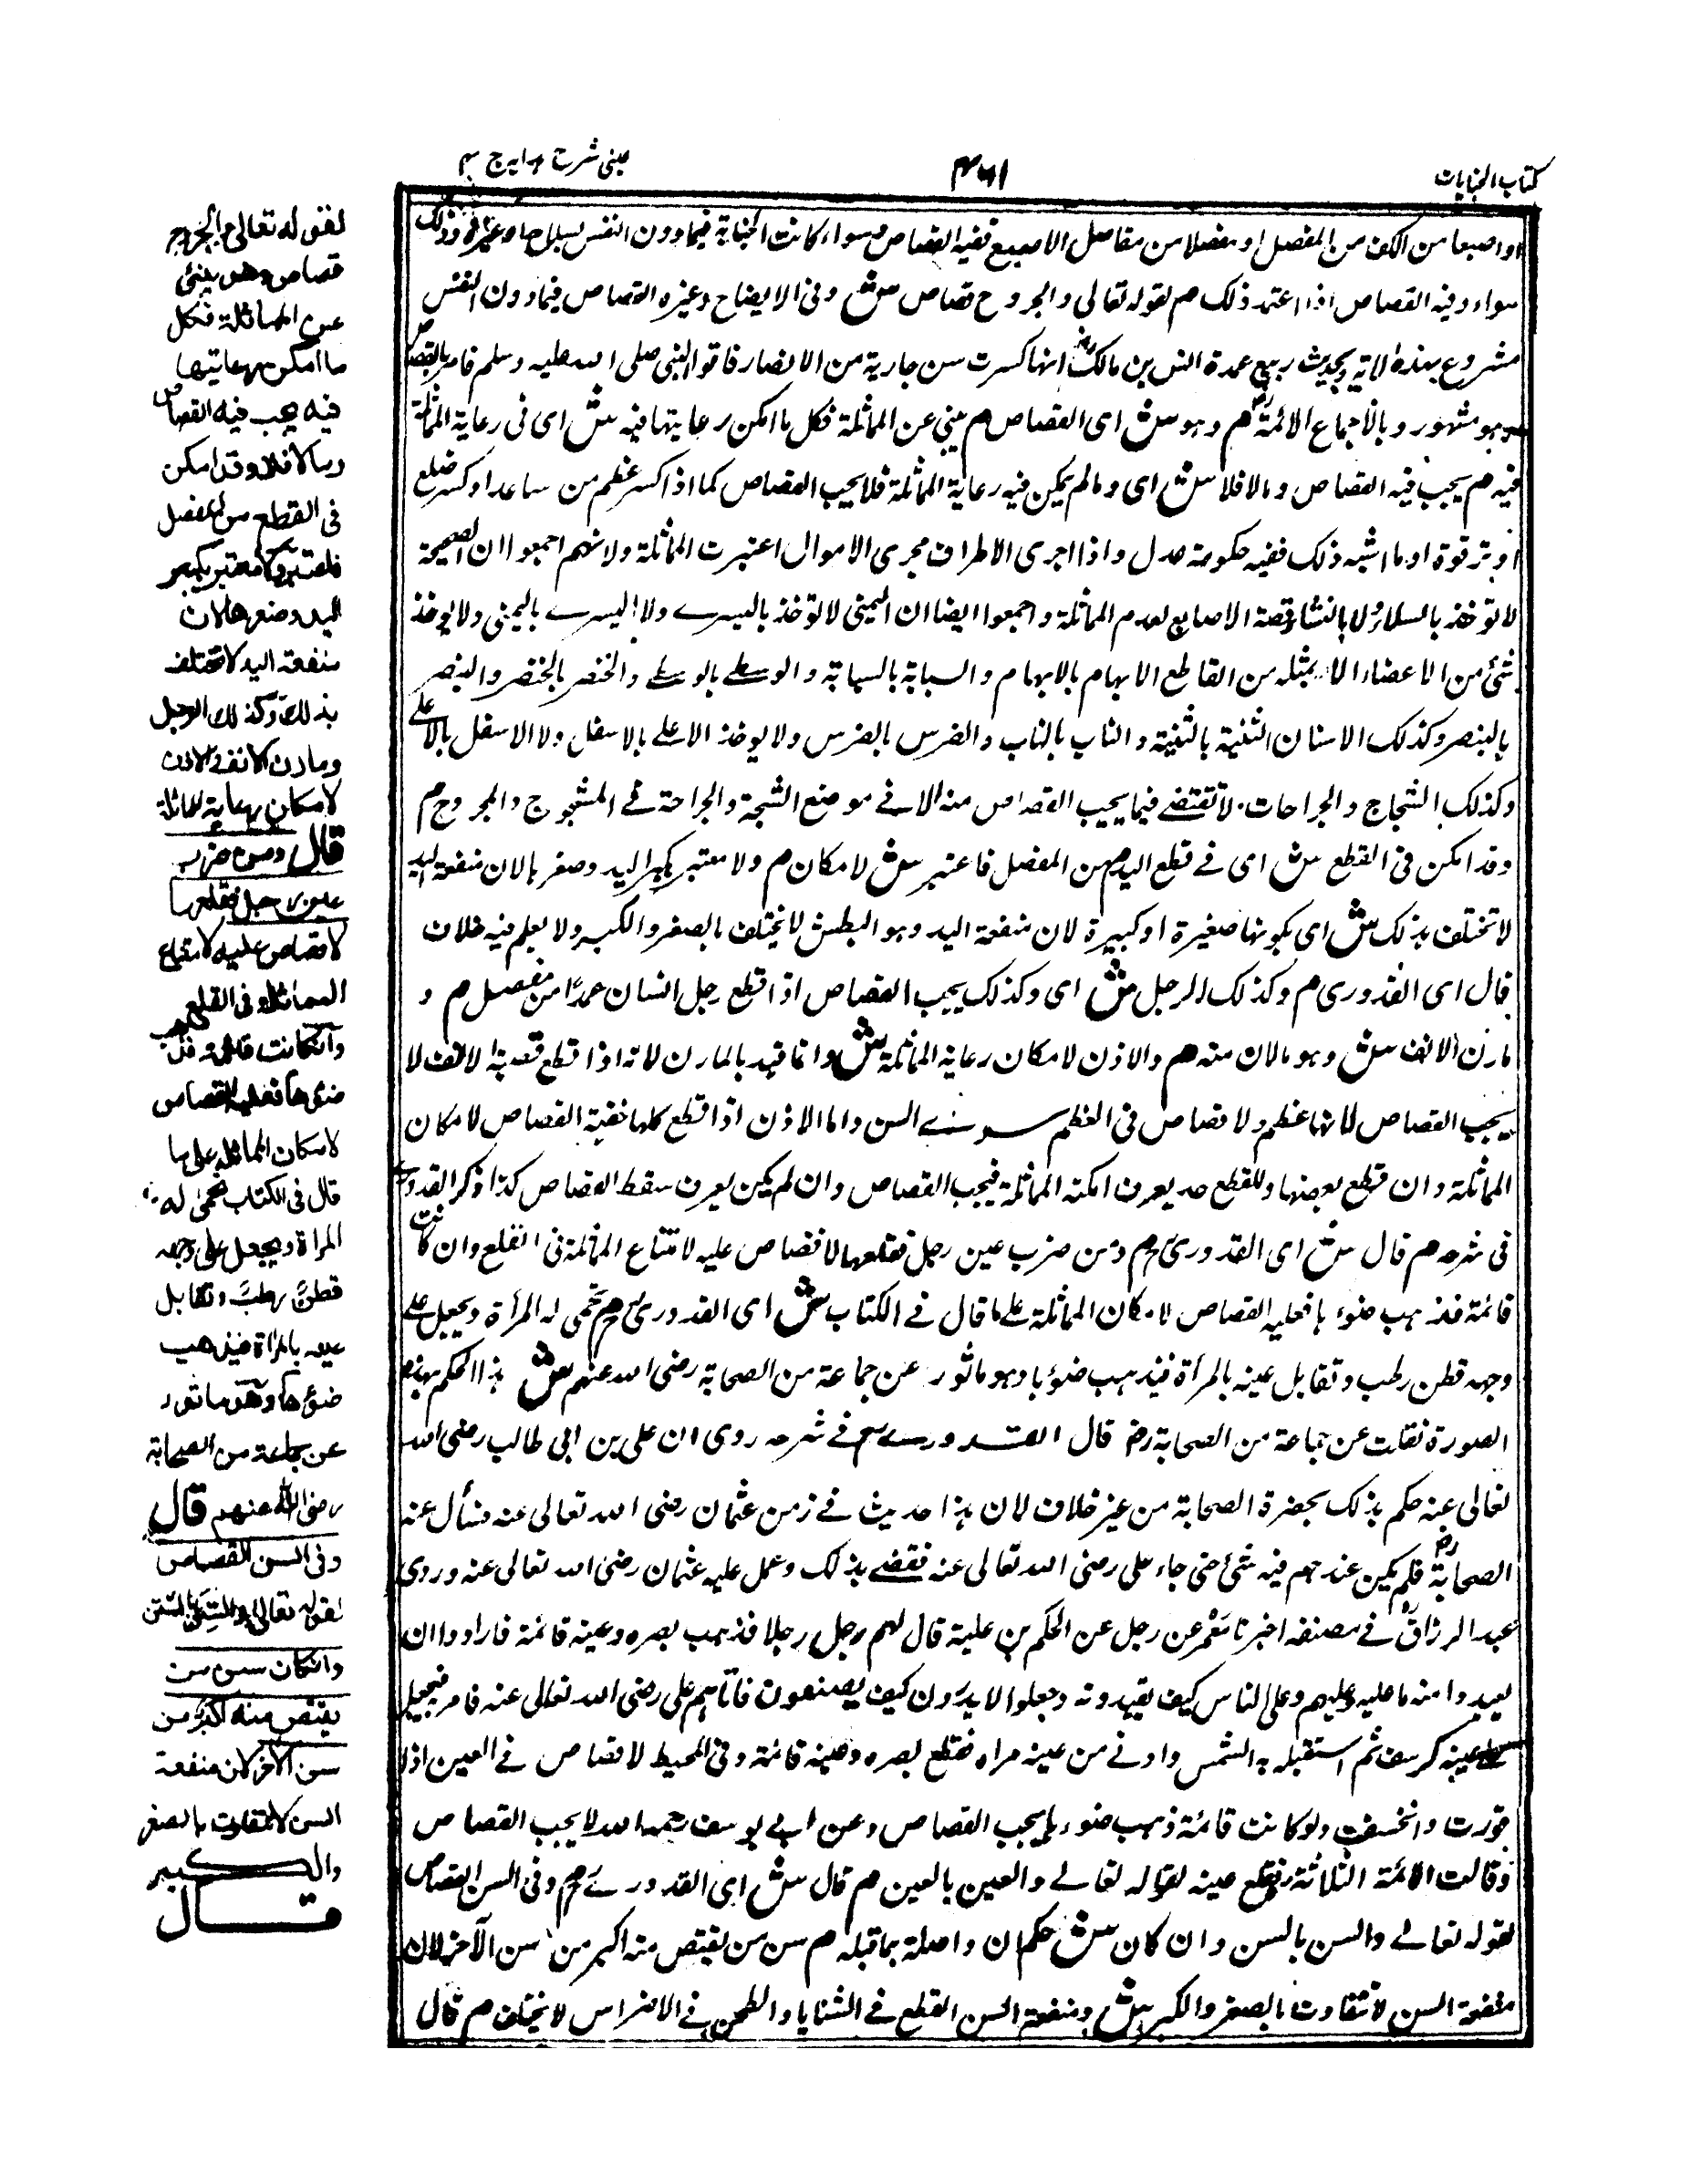 كتاب الجنايات
عينى شرح هدايه ج ٤
او اصبعا من الكف من المفصل او مفصلا من مفاصل الاصبع ففيه القصاص وسواء كانت الجناية فيما دون النفس بسلاح او غيره وذلك
سواء وفيه القصاص اذا اعتمد ذلك م لقوله تعالى والجروح قصاص ش وفى الايضاح وغيره القصاص فيما دون النفس
مشروع بهذه الاية وبحديث ربيع عمة انس بن مالك رض انها كسرت سن جارية من الانصار فاتوا النبى صلى الله عليه وسلم فامر بالقصاص
وهو مشهور وبالاجماع الائمة م وهو ش اى القصاص م ينبئ عن المماثلة فكل ما امكن رعايتها فيه ش اى فى رعاية المماثلة
فيه م يجب فيه القصاص ومالا فلا ش اى ومالم يمكن فيه رعاية المماثلة فلا يجب القصاص كما اذا كسر عظم من ساعد او كسر ضلع
او ترقوة او ما اشبه ذلك ففيه حكومة عدل واذا اجرى الاطراف مجرى الاموال اعتبرت المماثلة ولانهم اجمعوا ان الصحيحة
لا تؤخذ بالشلاء ولا بناقصة الاصابع لعدم المماثلة واجمعوا ايضا ان اليمنى لا توخذ باليسرے ولا اليسرے باليمنى ولا يوخذ
شئ من الاعضاء الا بمثله من القاطع الابهام بالابهام والسبابة بالسبابة والوسطے بالوسطے والخنصر بالخنصر والبنصر
بالبنصر وكذلك الاسنان الثنية بالثنية والناب بالناب والضرس بالضرس ولا يوخذ الاعلے بالاسفل ولا الاسفل بالاعلے
وكذلك الشجاج والجراحات لا تقتضے فيما يجب القصاص منه الا فے موضع الشجة والجراحة فے المشجوج والمجروح م
وقد امكن فى القطع ش اى فے قطع اليد م من المفصل فاعتبر ش لامكان م ولا معتبر بكبر اليد وصغرها لان منفعة اليد
لا تختلف بذلك ش اى بكونها صغيرة او كبيرة لان منفعة اليد وهو البطش لا يختلف بالصغر والكبر ولا يعلم فيه خلاف
قال اى القدورى م وكذلك الرجل ش اى وكذلك يجب القصاص اذا قطع رجل انسان عمدًا من مفصل م و
مارن الانف ش وهو مالان منه م والاذن لامكان رعاية المماثلة ش وانما قيد بالمارن لانه اذا قطع قصبة الانف لا
يجب القصاص لانها عظم ولا قصاص فى العظم سوے السن واما الاذن اذا قطع كلها ففيه القصاص لامكان
المماثلة وان قطع بعضها وللقطع حد يعرف امكنه المماثلة فيجب القصاص وان لم يكن يعرف سقط القصاص كذا ذكر القدورے
فى شرحه م قال ش اى القدورى م ومن ضرب عين رجل فقلعها لا قصاص عليه لامتناع المماثلة فى القلع وان كانت
قائمة فذهب ضوءها فعليه القصاص لامكان المماثلة علے ما قال فے الكتاب ش اى القدورى م تحمى له المرأة ويجعل علے
وجهه قطن رطب وتقابل عينه بالمرأة فيذهب ضوؤها وهو ماثور عن جماعة من الصحابة رضى الله عنهم ش هذا الحكم بهذه
الصورة نقلت عن جماعة من الصحابة رض قال القدورے فے شرحه روى ان على بن ابى طالب رضى الله
تعالى عنه حكم بذلك بحضرة الصحابة من غير خلاف لان هذا حديث فے زمن عثمان رضى الله تعالى عنه فسأل عنه
الصحابة رض فلم يكن عندهم فيه شئ حتى جاء على رضى الله تعالى عنه فقضے بذلك وعمل عليه عثمان رضى الله تعالى عنه وروى
عبد الرزاق فے مصنفه اخبرنا معمر عن رجل عن الحكم بن عليه قال لهم رجل رجلا فذهب بصره وعينه قائمة فارادوا ان
يقيدوا منه ما عليه وعليهم وعلى الناس كيف يقيدونه وجعلوا لا يدرون كيف يصنعون فاتاهم على رضى الله تعالى عنه فامر فجعل
علے عينه كرسف ثم استقبل به الشمس وادنے من عينه مراه فقلع بصره وعينه قائمة وفى المحيط لا قصاص فے العين اذا
قورت وانخسفت ولو كانت قائمة ذهب ضوءها يجب القصاص وعن ابے يوسف رحمه الله لا يجب القصاص
وقالت الائمة الثلاثة تقلع عينه لقوله تعالے والعين بالعين م قال ش اى القدورے م وفى السن القصاص
لقوله تعالے والسن بالسن وان كان ش حكم ان واصلة بما قبله م سن من يقتص منه اكبر من سن الآخر لان
منفعة السن لا تتفاوت بالصغر والكبر ش ومنفعة السن القطع فے الثنايا والطحن فے الاضراس لا يختلف م قال
لقوله تعالى والجروح
قصاص وهو ينبئ
عن المماثلة فكل
ما امكن رعايتها
فيه يجب فيه القصاص
ومالا فلا وقد امكن
فى القطع من المفصل
فاعتبر ولا معتبر بكبر
اليد وصغرها لان
منفعة اليد لا تختلف
بذلك وكذلك الرجل
ومارن الانف والاذن
لامكان رعاية المماثلة
قال ومن ضرب
عين رجل فقلعها
لا قصاص عليه لامتناع
المماثلة فى القلع
وان كانت قائمة فذهب
ضوءها فعليه القصاص
لامكان المماثلة على ما
قال فى الكتاب تحمى له
المراة ويجعل على وجهه
قطن رطب وتقابل
عينه بالمراة فيذهب
ضوؤها وهو ماثور
عن جماعة من الصحابة
رضى الله عنهم قال
وفى السن القصاص
لقوله تعالى والسن بالسن
وان كان سن من
يقتص منه اكبر من
سن الآخر لان منفعة
السن لا تتفاوت بالصغر
والكبير
قال